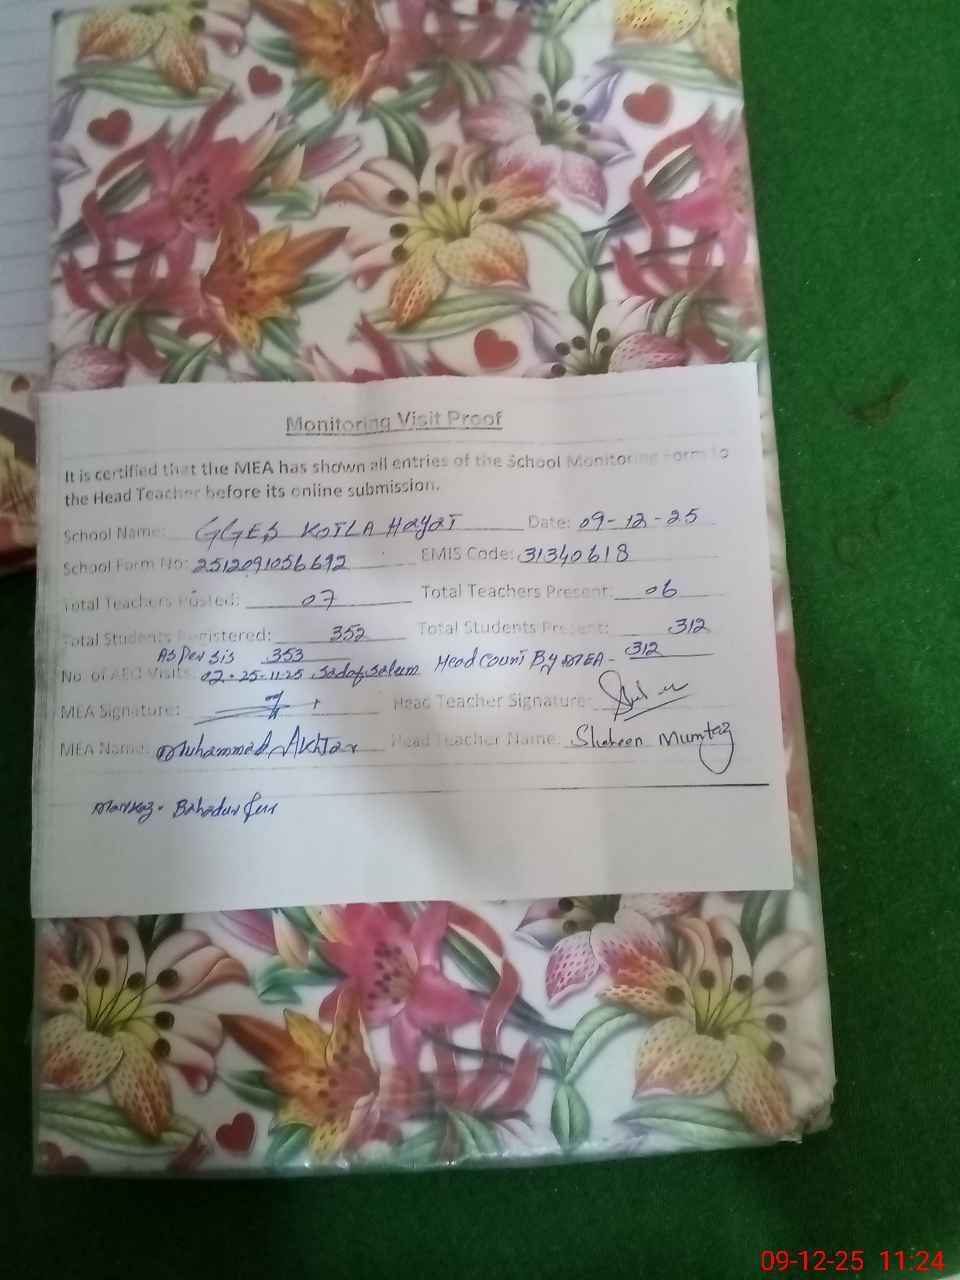 Monitoring Visit Proof
It is certified that the MEA has shown all entries of the School Monitoring Form to
the Head Teacher before its online submission.
School Name: GGES KOTLA HAYAT Date: 09-12-25
School Form No: 2512091056692 EMIS Code: 31340618
Total Teachers Posted: 07 Total Teachers Present: 06
Total Students Registered: 352 Total Students Present: 312
As per SIS 353 Head Count By MEA - 312
No. of AEO Visits: 02 - 25-11-25 Sadaf Saleem
MEA Signature: Head Teacher Signature:
MEA Name: Muhammad Akhtar Head Teacher Name: Shaheen Mumtaz
Markaz. Bahadur Pur
09-12-25 11:24